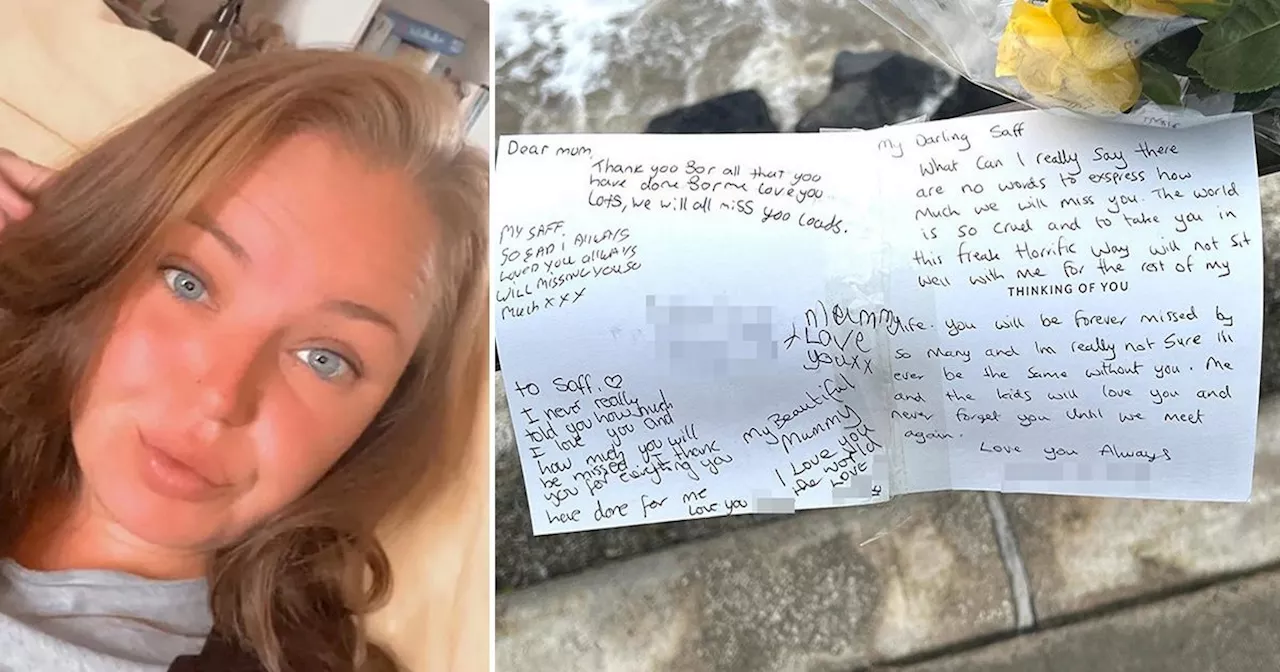 Dear mum,
Thank you for all that you
have done for me love you
Lots, we will all miss you loads.
MY SAFF.
SO SAD I ALWAYS
LOVED YOU allways
Will missing you so
Much x x x
to Saff. ♡
I never really
told you how much
I love you and
how much you will
be missed thank
you for everything you
have done for me
love you
Mummy
x Love
you xx
My Beautiful
Mummy
I Love you
the world
love
My Darling Saff
What Can I really Say there
are no words to exspress how
Much we will miss you. The world
is so cruel and to take you in
this freak Horrific way will not sit
well with me for the rest of my
THINKING OF YOU
life. you will be forever missed by
so many and Im really not Sure ill
ever be the Same without you. Me
and the kids will love you and
never forget you Until we meet
again.
Love you Always